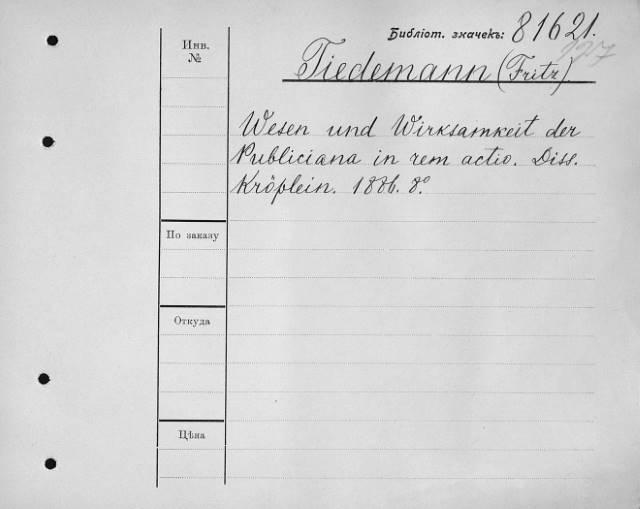 Библіот. значекъ: 81621.
127
Инв.
№
Tiedemann (Fritz).
Wesen und Wirksamkeit der
Publiciana in rem actio. Diss.
Kröplein. 1886. 8º.
По заказу
Откуда
Цѣна